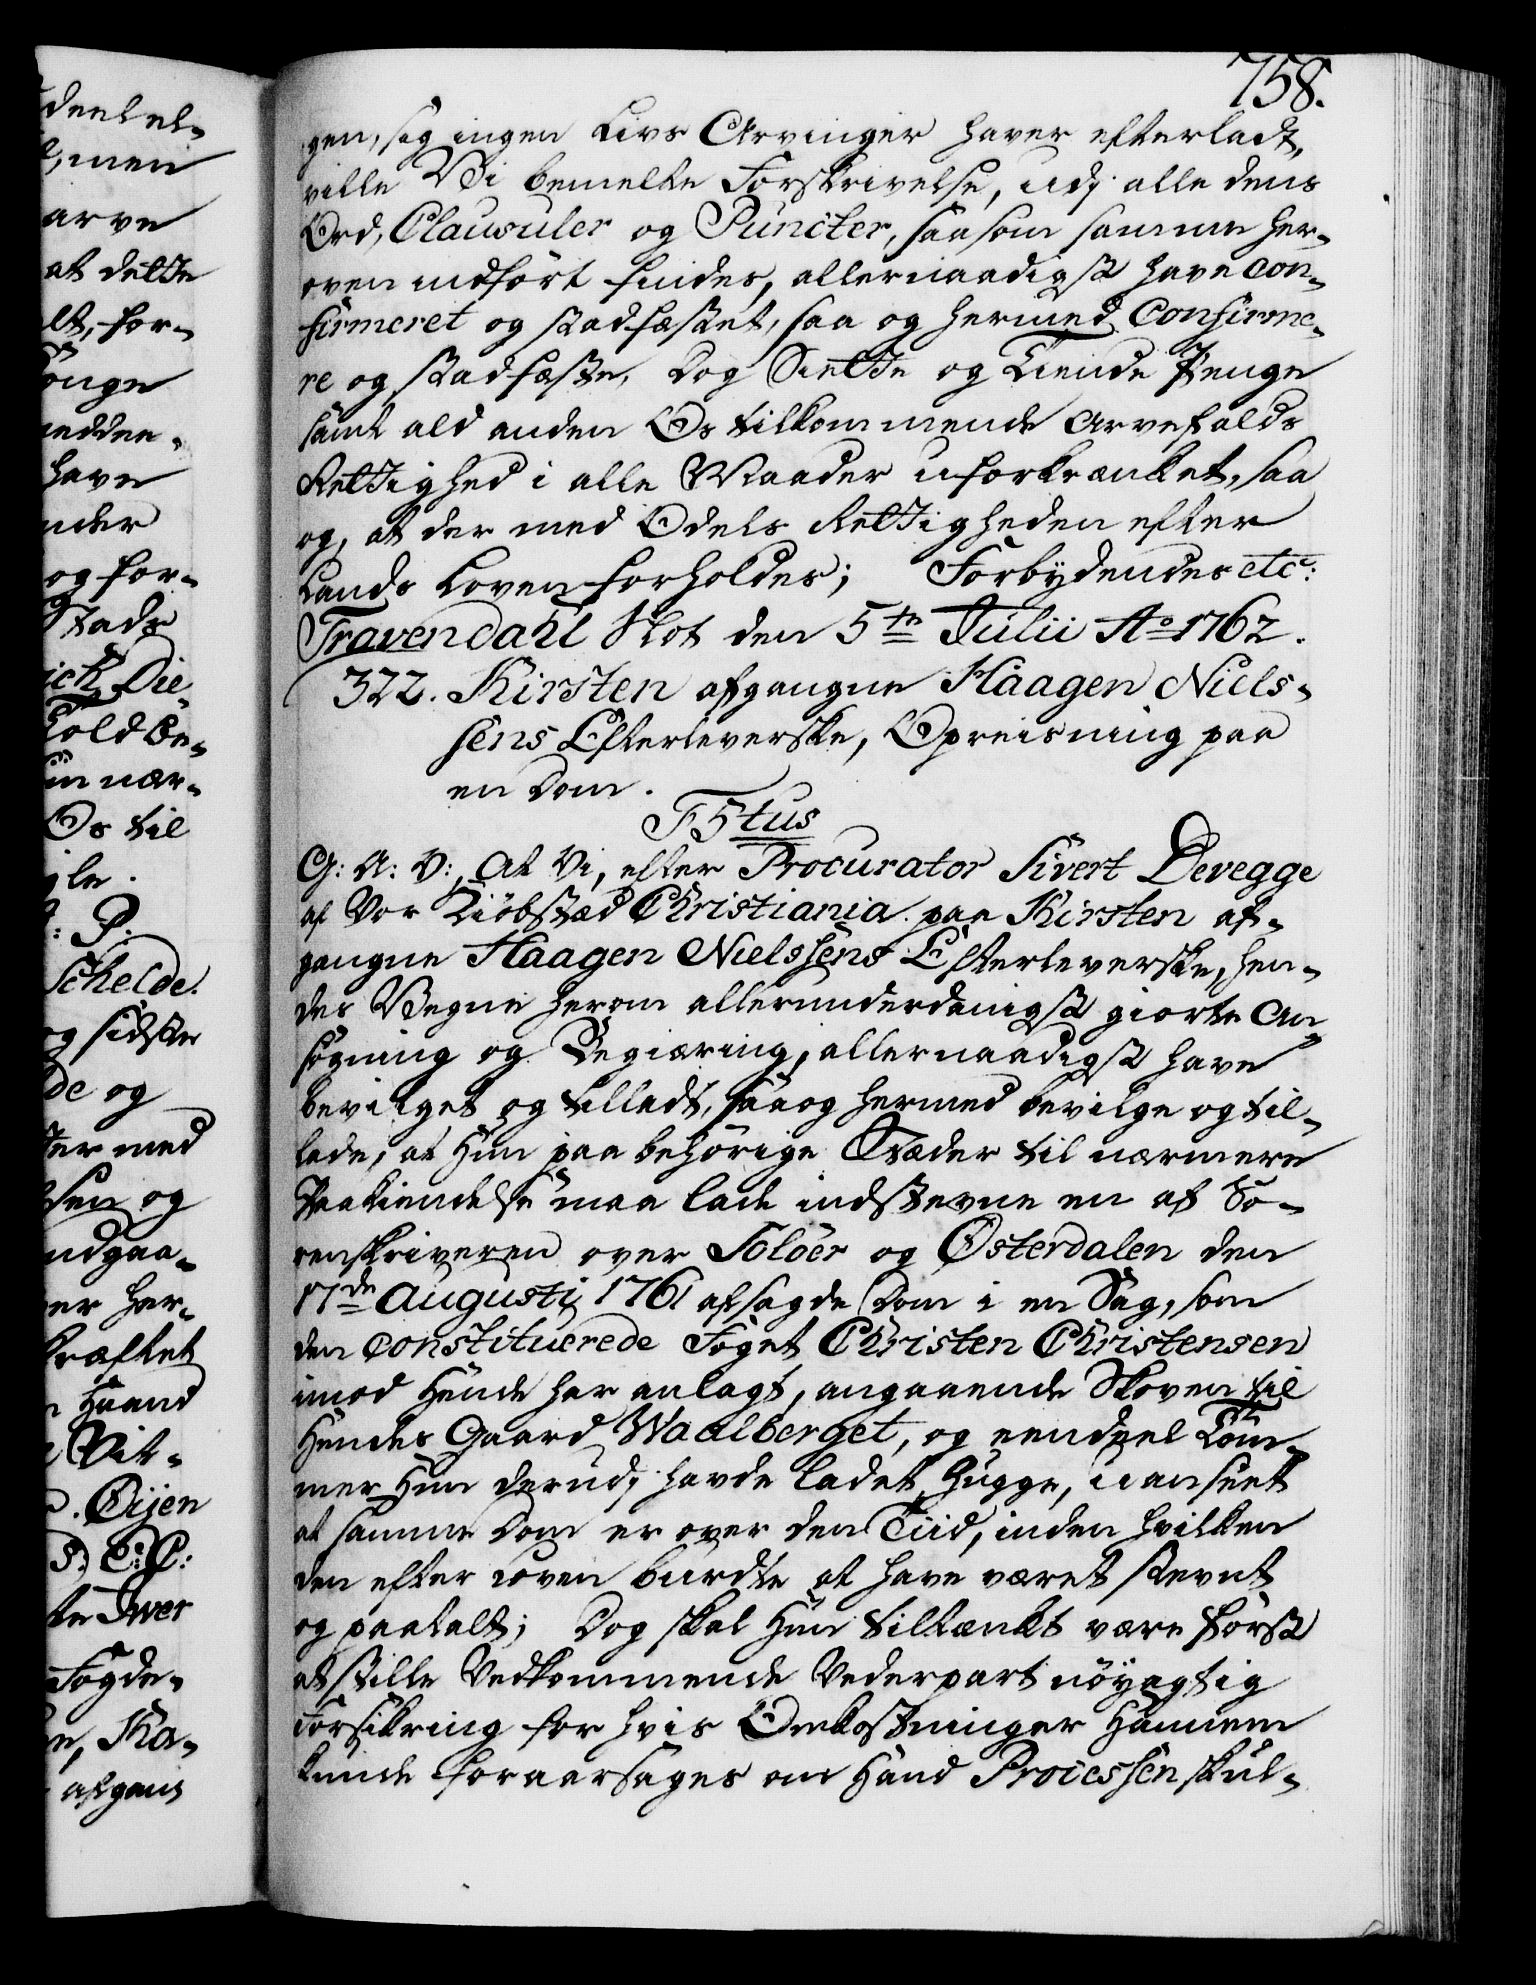 758.
gen, sig ingen Livs Arvinger haver efterladt,
ville Vi bemelte Forskrivelse, udj alle dens
Ord, Clausuler og Puncter, saasom samme her-
oven indført findes, allernaadigst have con-
firmeret og stadfæstet, saa og hermed Confirme-
re og stadfæste, dog Siette og Tiende Penge
samt ald anden Os tilkommende Arvefalds
Rettighed i alle Maader uforkrænket, saa
og, at der med Odels Rettigheden efter
Lands Loven forholdes; Forbydendes etc:
Travendahl Slot den 5te Julii Ao 1762.
322. Kirsten afgangne Haagen Niels-
sens Efterleverske, Opreisning paa
en Dom.
F5tus
G: A: V:, At Vi, efter Procurator Sivert Devegge
af Vor Kiøbstæd Christiania paa Kirsten af-
gangne Haagen Nielssens Efterleverske, hen-
des Vegne herom allerunderdanigst giorte An-
søgning og Begiæring, allernaadigst have
bevilget og tilladt, saa og hermed bevilge og til-
lade, at Hun paa behørige Stæder til nærmere
Paakiendelse maa lade indstevne en af So-
renskriveren over Soløer og Østerdalen den
17de Augustij 1761 afsagde Dom i en Sag, som
den constituerede Foget Christen Christensen
imod Hende har anlagt, angaaende Skoven til
Hendes Gaard Waalberget, og eendeel Tøm-
mer Hun derudj havde ladet hugge, uanseet
at samme Dom er over den Tiid, inden hvilken
den efter Loven burdte at have været stevnt
og paatalt; Dog skal Hun tiltænkt være først
at stille Vedkommende Vederpart nöyagtig
Forsikring for hvis Omkostninger Hannem
kunde foraarsages om Hand Processen skul-